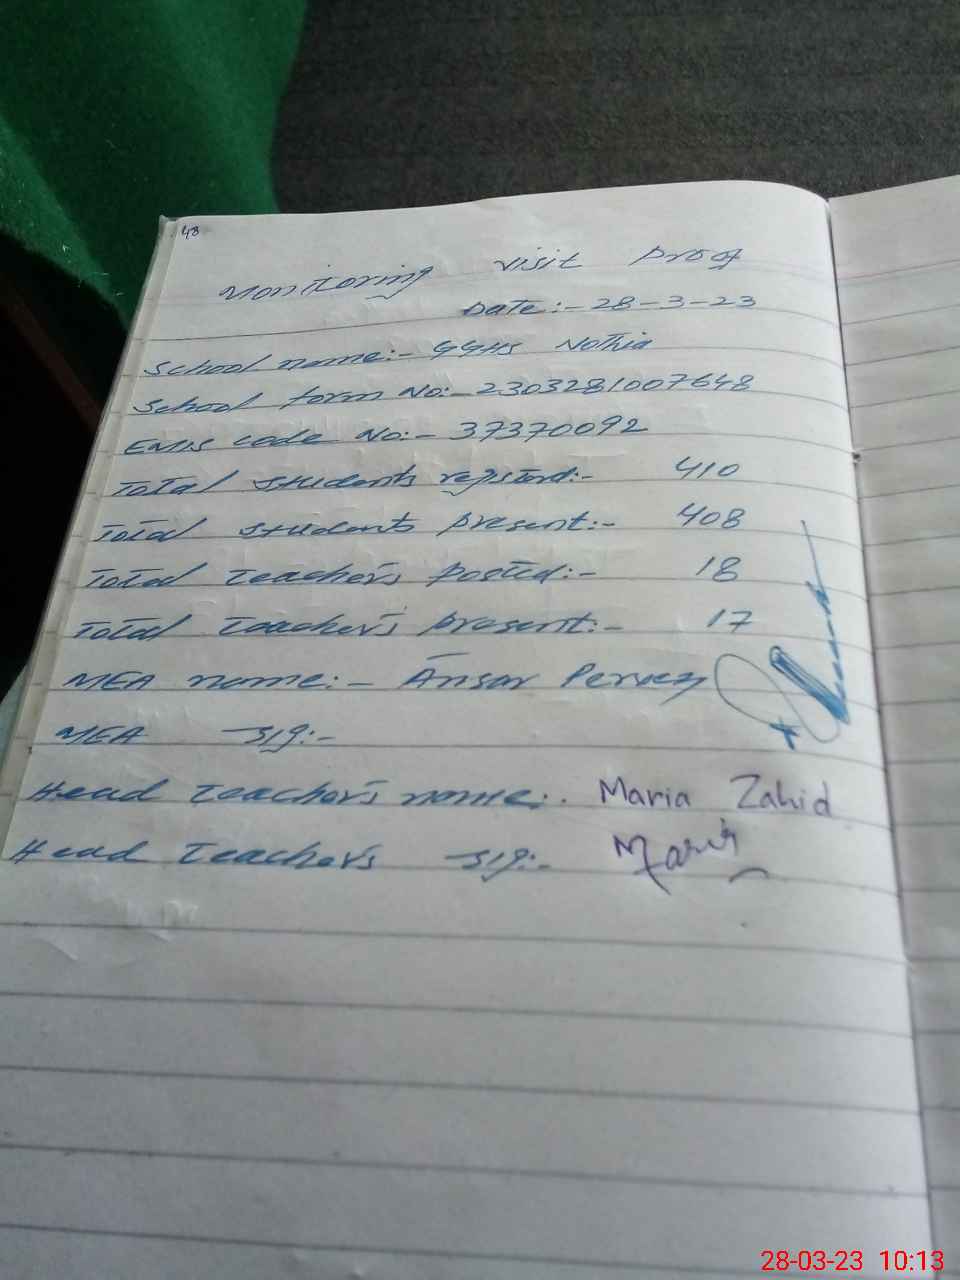 48
Monitoring visit proof
Date:- 28-3-23
School name:- GGHS Nothia
School form No:- 2303281007648
EMIS code No:- 37370092
Total students registerd:- 410
Total students present:- 408
Total teacher's posted:- 18
Total teacher's present:- 17
MEA name:- Ansar Pervez
MEA sig:-
Head teacher's name:. Maria Zahid
Head teacher's sig:- Maria
28-03-23 10:13